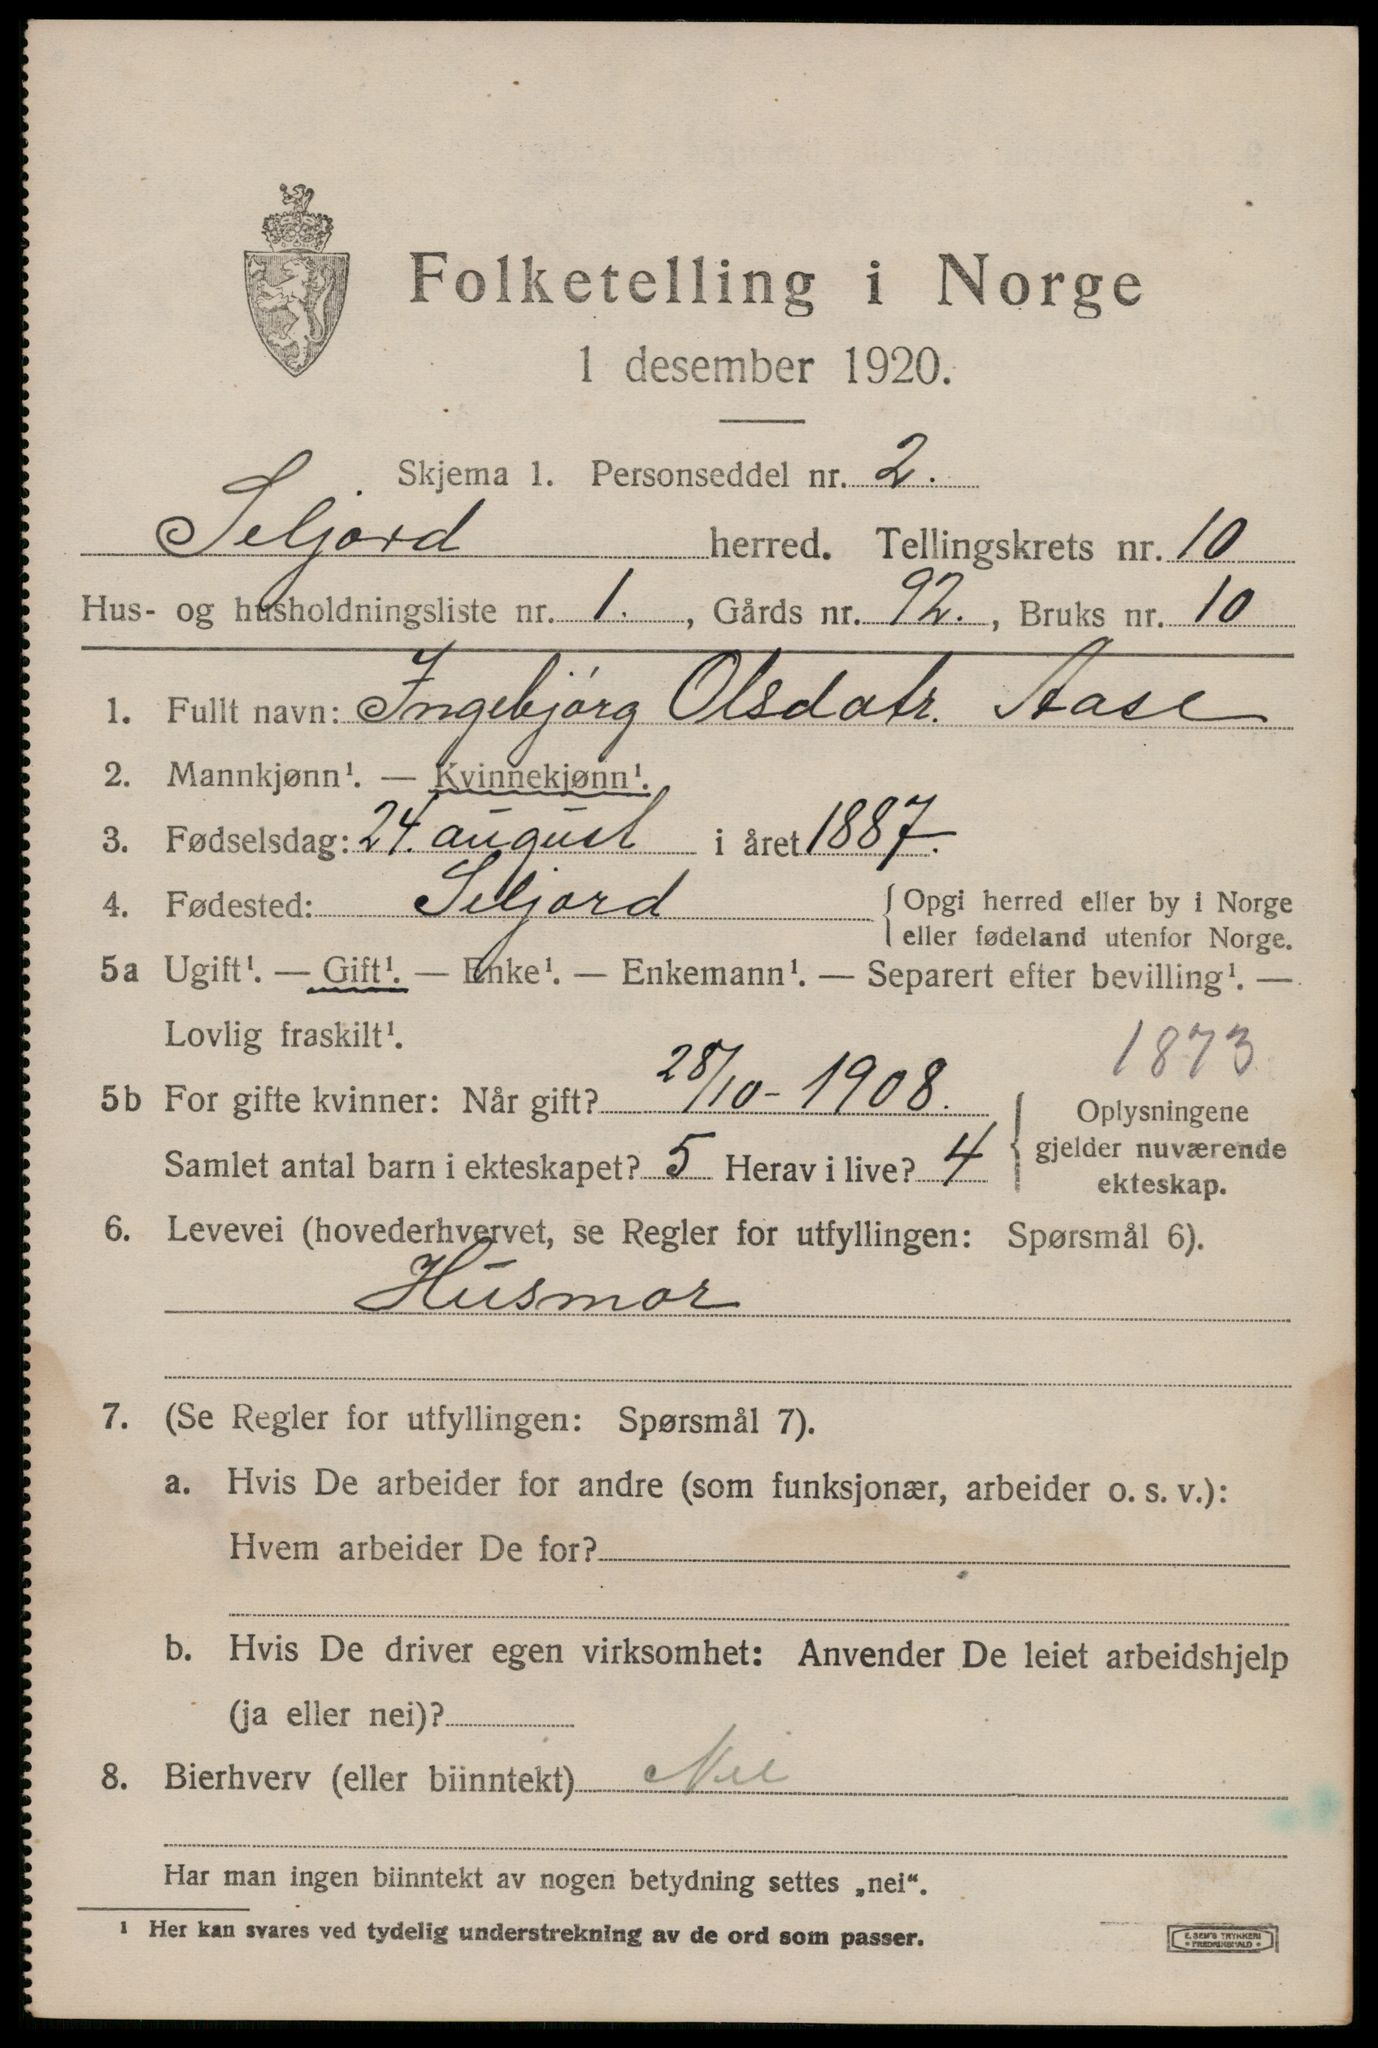 Folketelling i Norge
1 desember 1920.
Skjema 1. Personseddel nr. 2.
Seljord herred. Tellingskrets nr. 10
Hus- og husholdningsliste nr. 1., Gårds nr. 92., Bruks nr. 10
1. Fullt navn: Ingebjörg Olsdatr. Aase
2. Mannkjønn¹. — Kvinnekjønn¹.
3. Fødselsdag: 24. august i året 1887.
4. Fødested: Seljord { Opgi herred eller by i Norge
eller fødeland utenfor Norge.
5a Ugift¹. — Gift¹. — Enke¹. — Enkemann¹. — Separert efter bevilling¹. —
Lovlig fraskilt¹.
1873
5b For gifte kvinner: Når gift? 28/10 - 1908.
Samlet antal barn i ekteskapet? 5 Herav i live? 4
{ Oplysningene
gjelder nuværende
ekteskap.
6. Levevei (hovederhvervet, se Regler for utfyllingen: Spørsmål 6).
Husmor
7. (Se Regler for utfyllingen: Spørsmål 7).
a. Hvis De arbeider for andre (som funksjonær, arbeider o. s. v.):
Hvem arbeider De for?
b. Hvis De driver egen virksomhet: Anvender De leiet arbeidshjelp
(ja eller nei)?
8. Bierhverv (eller biinntekt) Nei
Har man ingen biinntekt av nogen betydning settes „nei“.
¹ Her kan svares ved tydelig understrekning av de ord som passer.
E. SEM'S TRYKKERI
• FREDRIKSHALD •